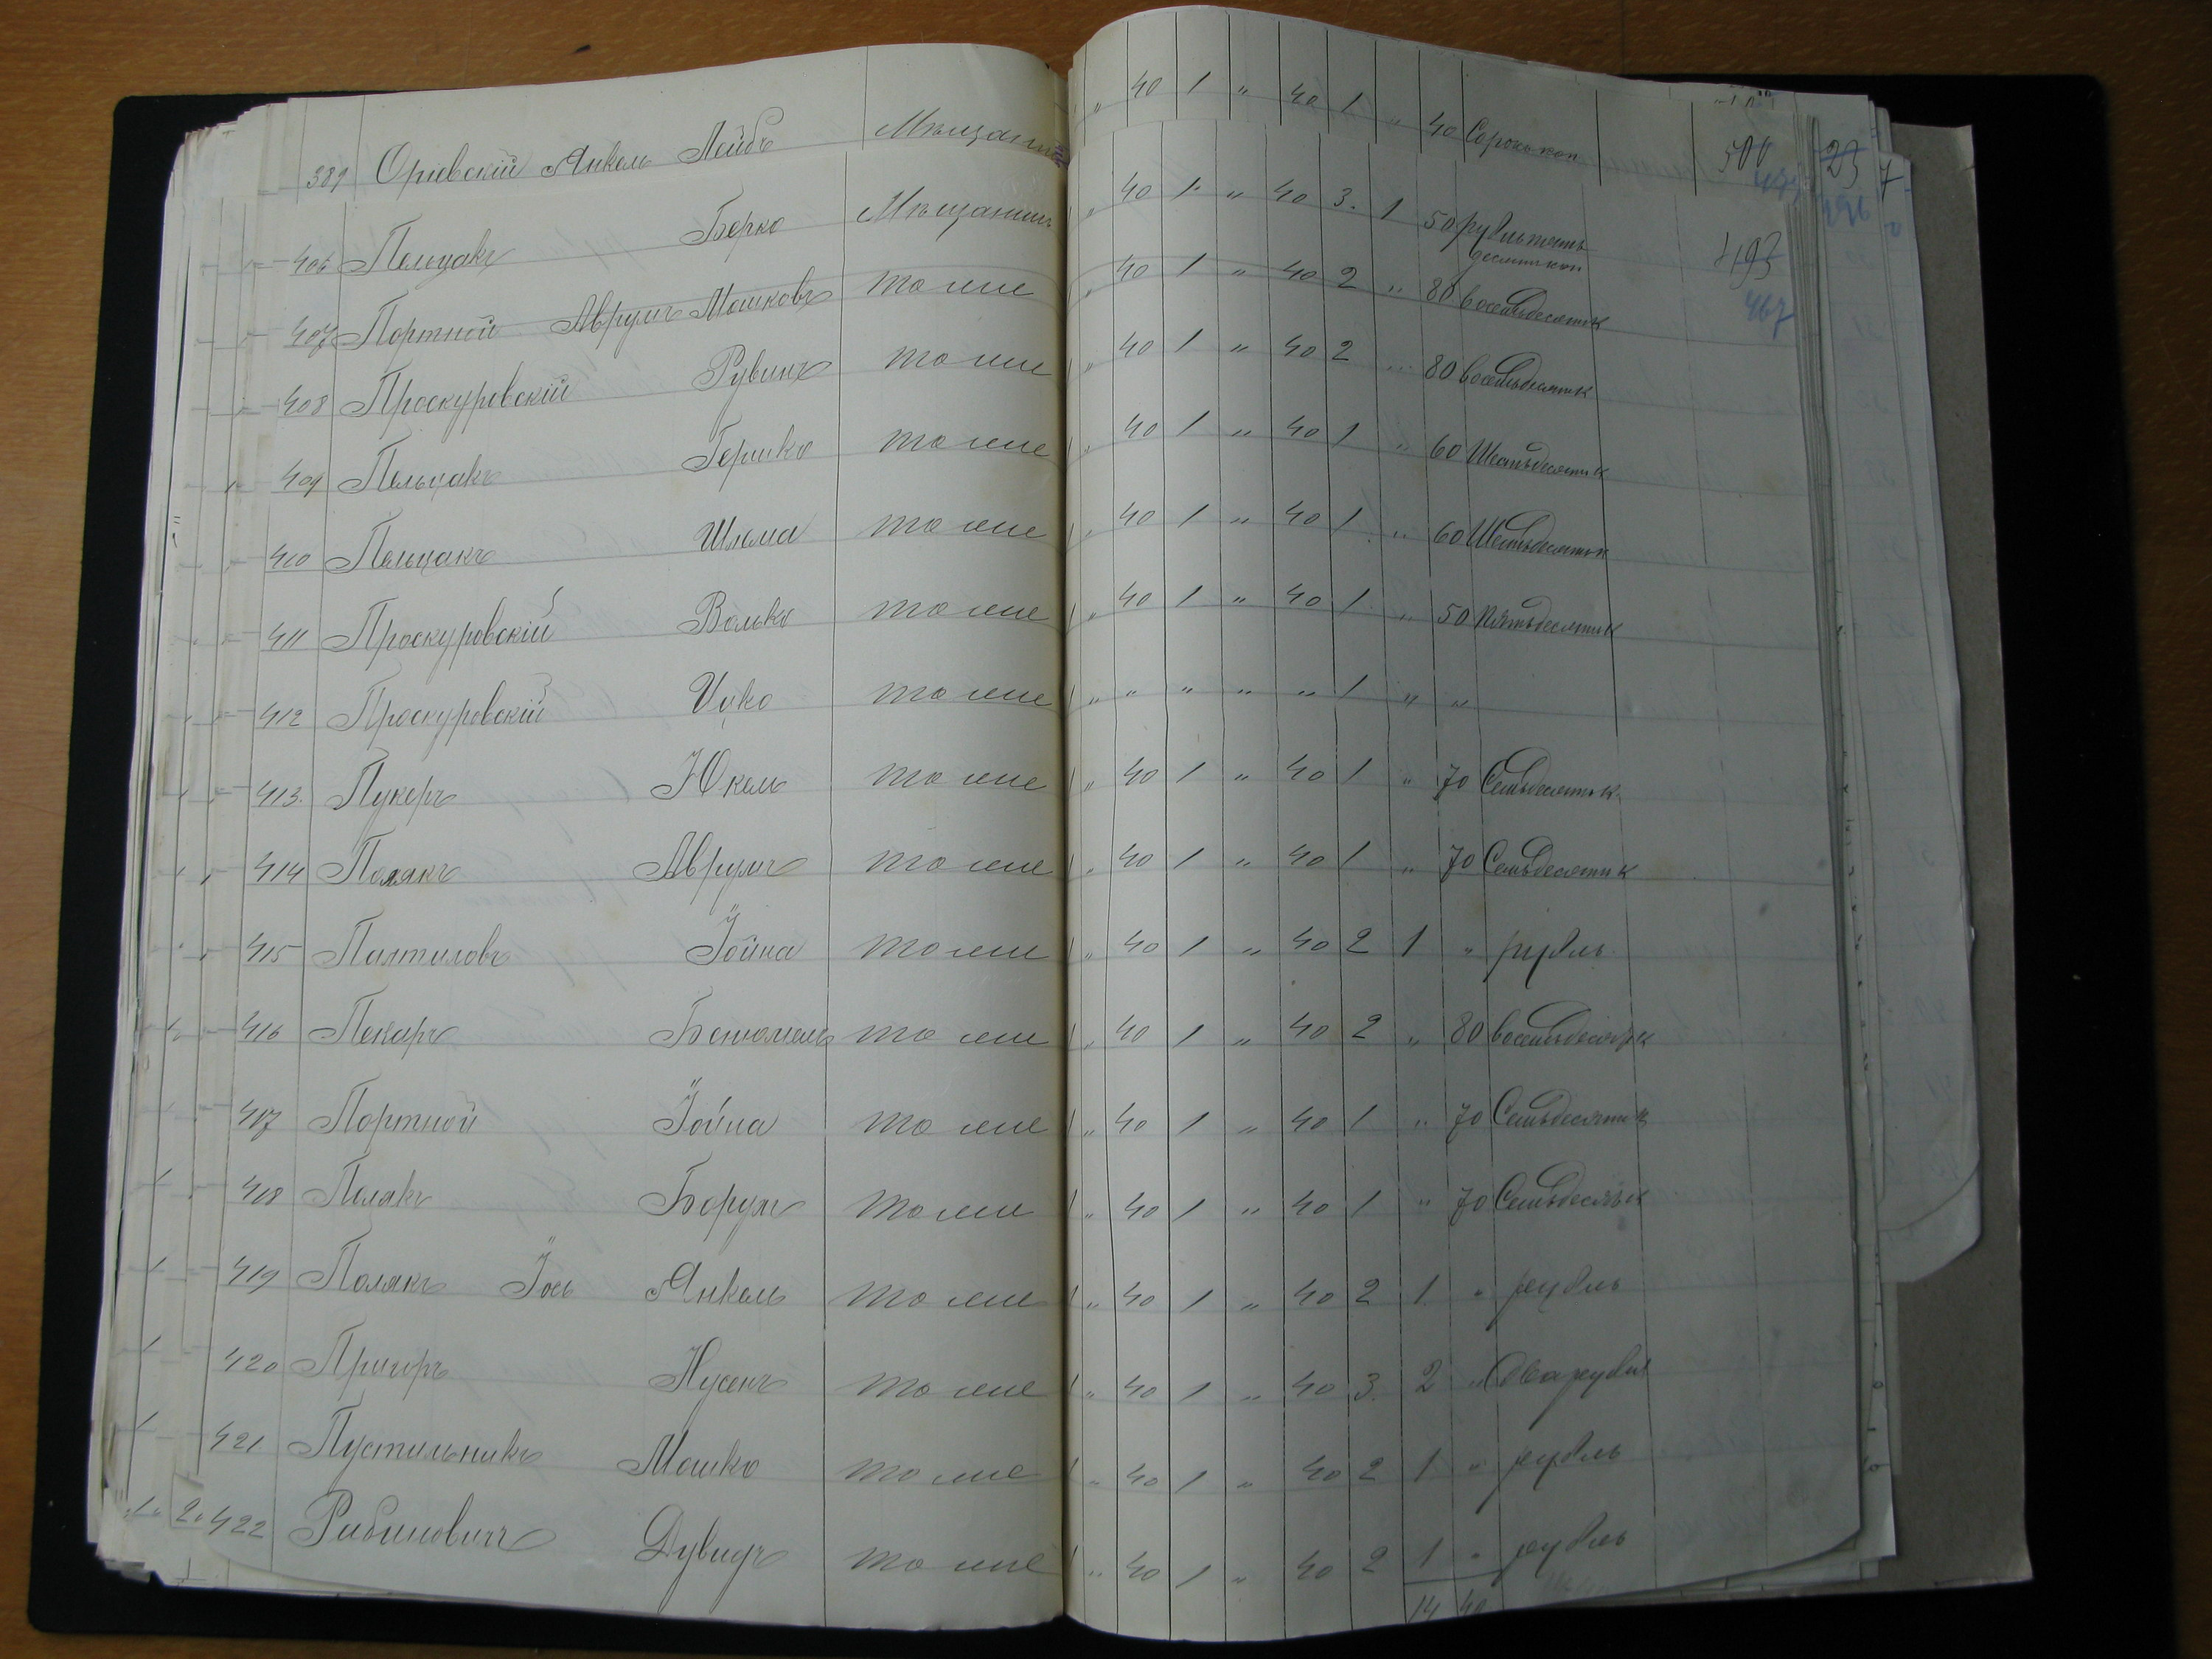 389 Ориевскій Янкель Лейбъ Мѣщанинъ „ 40 1 „ 40 1 „ 40 Сорокъ коп 500
406 Пельцакъ Берко Мѣщанинъ „ 40 1 „ 40 3 1 50 рубль пять
десятъ коп 493
407 Портной Аврумъ Мошковъ тоже „ 40 1 „ 40 2 „ 80 восемьдесятъ к 467
408 Проскуровскій Рувинъ тоже „ 40 1 „ 40 2 „ 80 восемьдесятъ к
409 Пельцакъ Гершко тоже „ 40 1 „ 40 1 „ 60 Шестьдесятъ к
410 Пельцакъ Шлема тоже „ 40 1 „ 40 1 „ 60 Шестьдесятъ к
411 Проскуровскій Волько тоже „ 40 1 „ 40 1 „ 50 Пятьдесятъ к
412 Проскуровскій Ицко тоже „ „ „ „ „ 1 „ „
413 Пукеръ Юкель тоже „ 40 1 „ 40 1 „ 70 Семьдесятъ к
414 Полякъ Аврумъ тоже „ 40 1 „ 40 1 „ 70 Семьдесятъ к
415 Палтиловъ Іойна тоже „ 40 1 „ 40 2 1 „ рубль
416 Пекаръ тоже „ 40 1 „ 40 2 „ 80 восемьдесятъ к
417 Портной Іойна тоже „ 40 1 „ 40 1 „ 70 Семьдесятъ к
418 Полякъ Борухъ тоже „ 40 1 „ 40 1 „ 70 Семьдесятъ к
419 Полякъ Іось Янкель тоже „ 40 1 „ 40 2 1 „ рубль
420 Нусенъ тоже „ 40 1 „ 40 3 2 „ Два рубля
421 Пустильникъ Мошко тоже „ 40 1 „ 40 2 1 „ рубль
422 Рабиновичъ Дувидъ тоже „ 40 1 „ 40 2 1 „ рубль
14 40